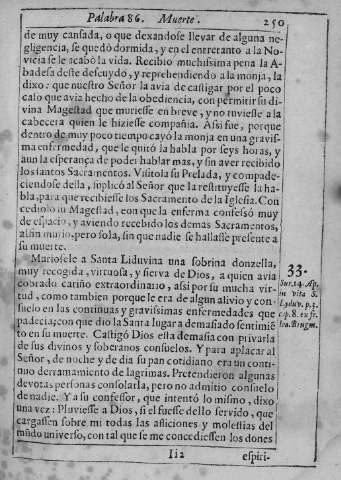 Palabra 86. Muerte. 250
de muy cansada, o que dexandose llevar de alguna ne-
gligencia, se quedò dormida, y en el entretanto a la No-
vicia se le acabò la vida. Recibio muchissima pena la A-
badesa deste descuydo, y reprehendiendo a la monja, la
dixo: que nuestro Señor la avia de castigar por el poco
caso que avia hecho de la obediencia, con permitir su di-
vina Magestad que muriesse en breve, y no tuviesse a la
cabecera quien le hiziesse compañia. Assi fue, porque
dentro de muy poco tiempo cayò la monja en una gravis-
ma enfermedad, que le quitò la habla por seys horas, y
aun la esperança de poder hablar mas, y sin aver recibido
los santos Sacramentos. Visitola su Prelada, y compade-
ciendose della, suplicò al Señor que la restituyesse la ha-
bla, para que recibiesse los Sacramentos de la Iglesia. Con
cediolo su Magestad, con que la enferma confessò muy
de espacio, y aviendo recebido los demas Sacramentos,
al fin murio, pero sola, sin que nadie se hallasse presente a
su muerte.
Mariosele a Santa Liduvina una sobrina donzella,
muy recogida, virtuosa, y sierva de Dios, a quien avia
cobrado cariño extraordinario, assi por su mucha vir-
tud, como tambien porque le era de algun alivio y con-
suelo en las continuas y gravissimas enfermedades que
padecia; con que dio la Santa lugar a demasiado sentimiẽ
to en su muerte. Castigò Dios esta demasia con privarla
de sus divinos y soberanos consuelos. Y para aplacar al
Señor, de noche y de dia su pan cotidiano era un conti-
nuo derramamiento de lagrimas. Pretendieron algunas
devotas personas consolarla, pero no admitio consuelo
de nadie. Y a su confessor, que intentò lo mismo, dixo
una vez: Pluviesse a Dios, si el fuesse dello servido, que
cargassen sobre mi todas las aflicciones y molestias del
mũdo universo, con tal que se me concediessen los dones
33.
Sur. 14. Ap.
in vita S.
Lyduv. p. 2.
cap. 8. ex fr.
Ioa. Brugm.
Ii2 espiri-